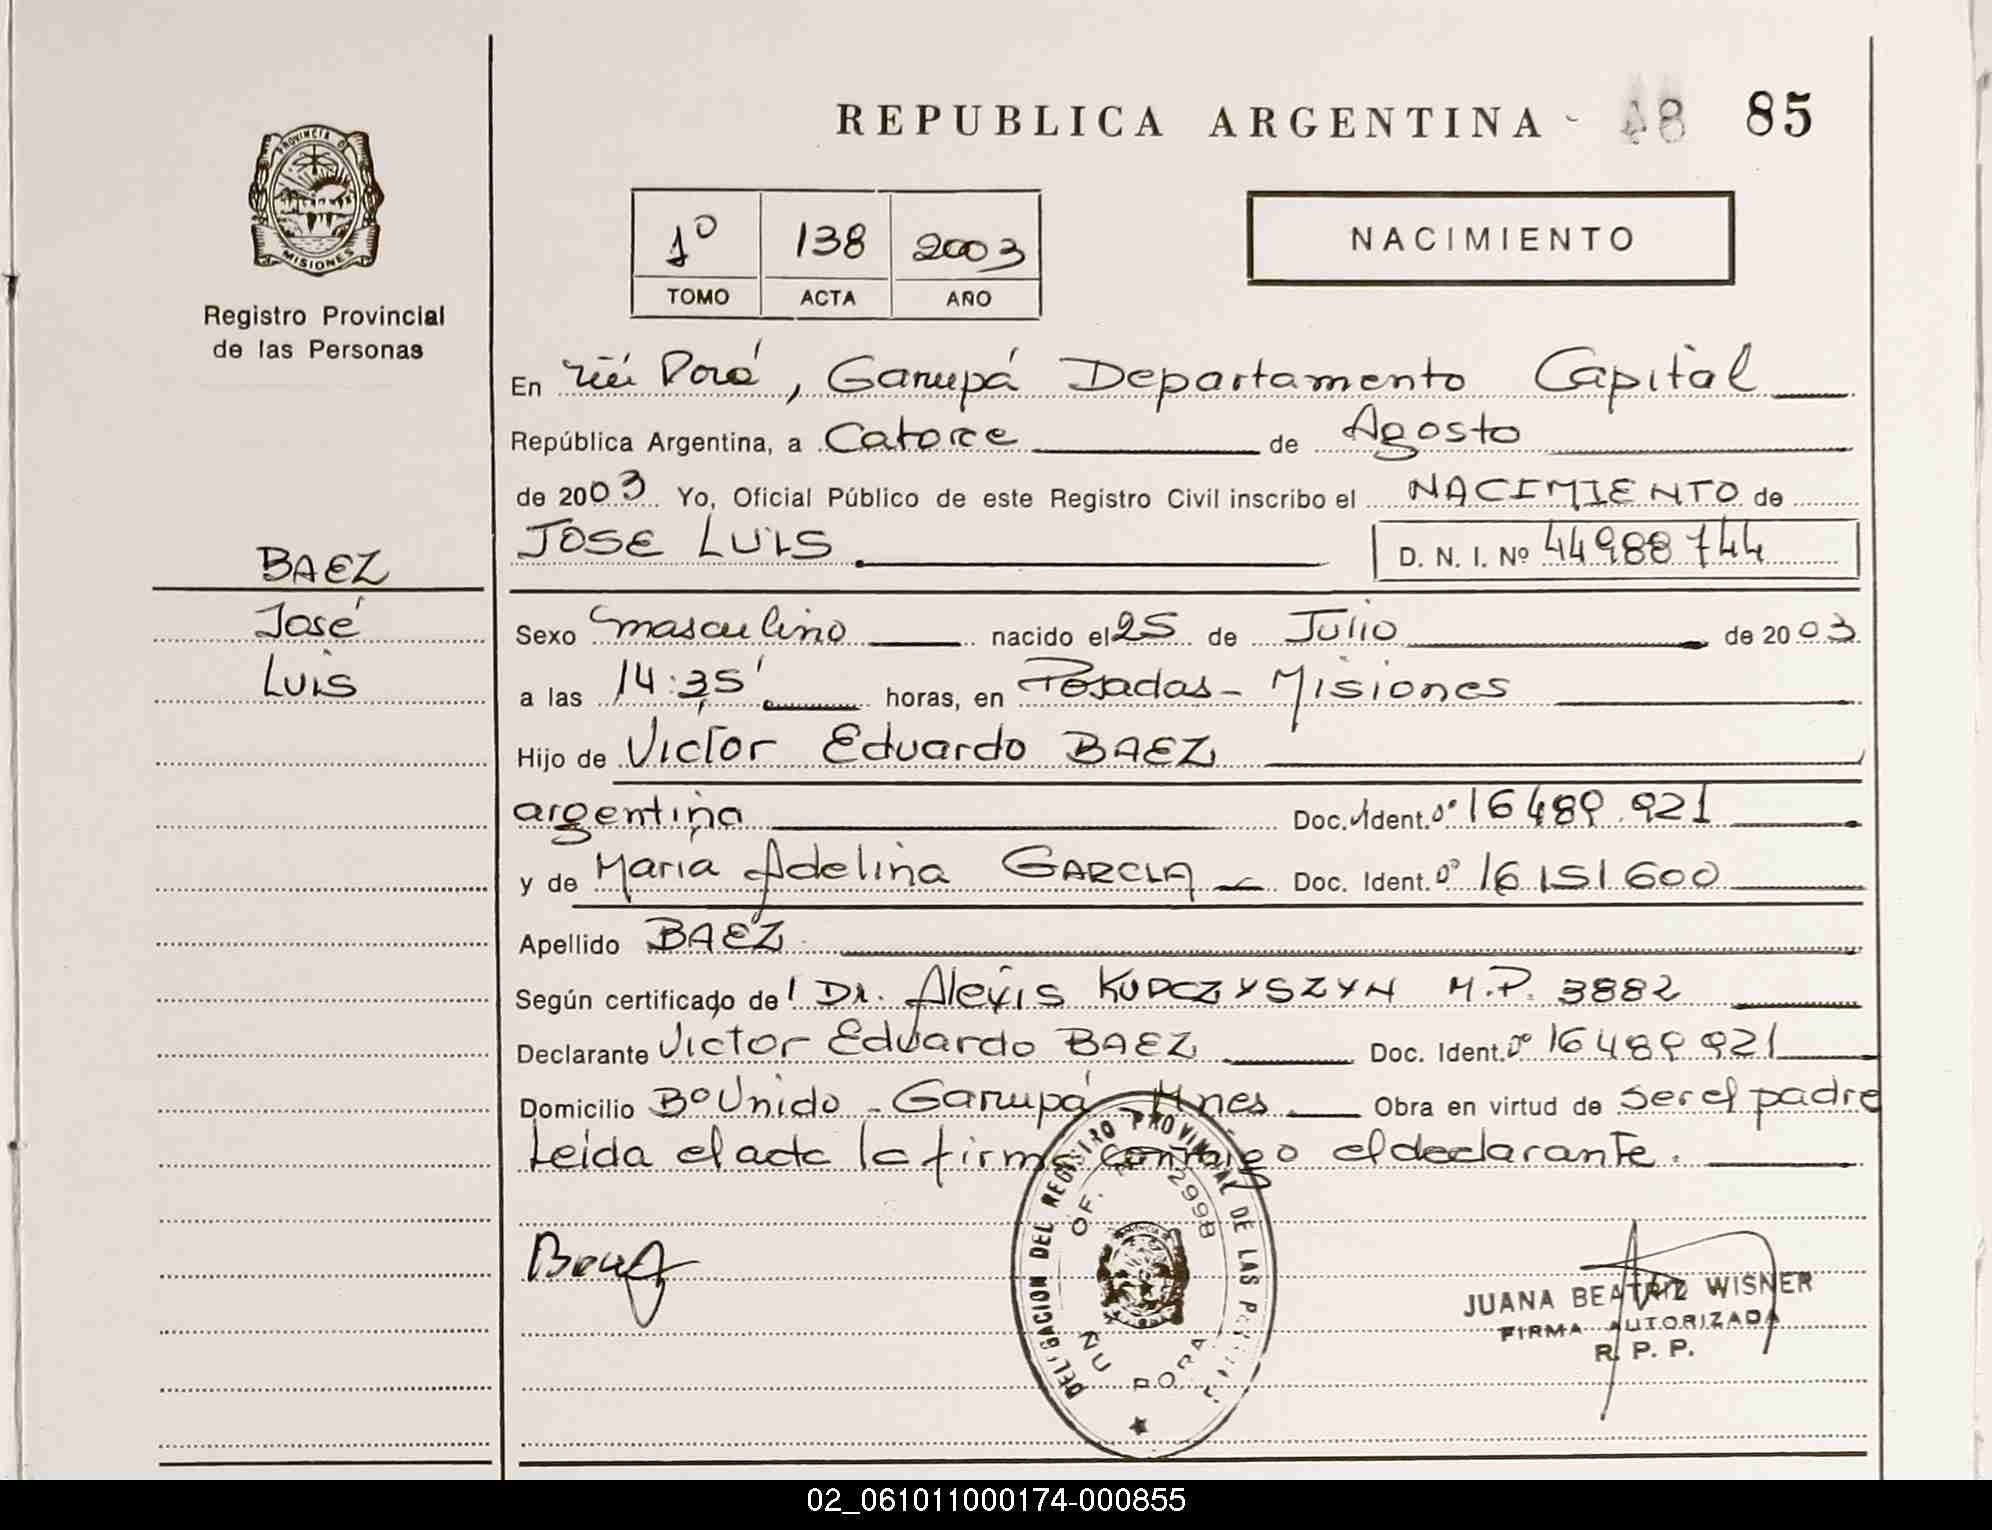 REPUBLICA ARGENTINA 48 85
PROVINCIA DE MISIONES
Registro Provincial
de las Personas
1º 138 2003
TOMO ACTA AÑO
NACIMIENTO
En Ñú Porá, Garupá Departamento Capital
República Argentina, a Catorce de Agosto
de 2003 Yo, Oficial Público de este Registro Civil inscribo el NACIMIENTO de
JOSE LUIS D. N. I. Nº 44988744
BAEZ
José
Luis
Sexo masculino nacido el 25 de Julio de 2003
a las 14:35' horas, en Posadas - Misiones
Hijo de Victor Eduardo BAEZ
argentina Doc. Ident. 16489.921
y de Maria Adelina GARCIA Doc. Ident. 16151600
Apellido BAEZ
Según certificado de Dr. Alexis KUPCZYSZYN M.P. 3882
Declarante Victor Eduardo BAEZ Doc. Ident. 16489921
Domicilio Bº Unido - Garupá - Mnes Obra en virtud de ser el padre
Leida el acta la firma conmigo el declarante.
DELEGACION DEL REGISTRO PROVINCIAL DE LAS
OF. 2998
ÑU PORA
JUANA BEATRIZ WISNER
FIRMA AUTORIZADA
R. P. P.
02_061011000174-000855